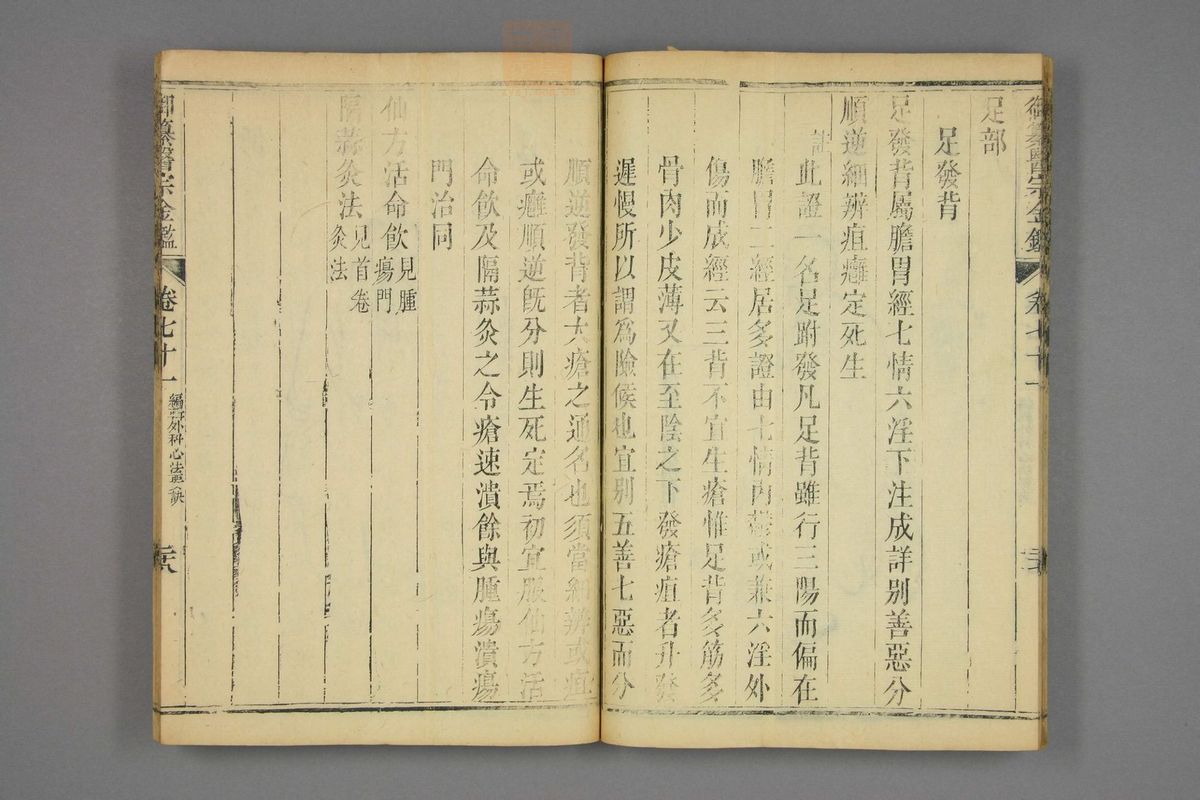 御纂醫宗金鑑 卷七十一
足部
足發背
足發背屬膽胃經七情六淫下注成詳別善惡分
順逆細辨疽癰定死生
註此證一名足跗發凡足背雖行三陽而偏在
膽胃二經居多證由七情內鬱或兼六淫外
傷而成經云三背不宜生瘡惟足背多筋多
骨肉少皮薄又在至陰之下發瘡疽者升發
遲慢所以謂為險候也宜別五善七惡而分
順逆發背者大瘡之通名也須當細辨或疽
或癰順逆既分則生死定焉初宜服仙方活
命飲及隔蒜灸之令瘡速潰餘與腫瘍潰瘍
門治同
仙方活命飲見腫瘍門
隔蒜灸法見首卷灸法
御纂醫宗金鑑 卷七十一 編輯外科心法要訣 二十八